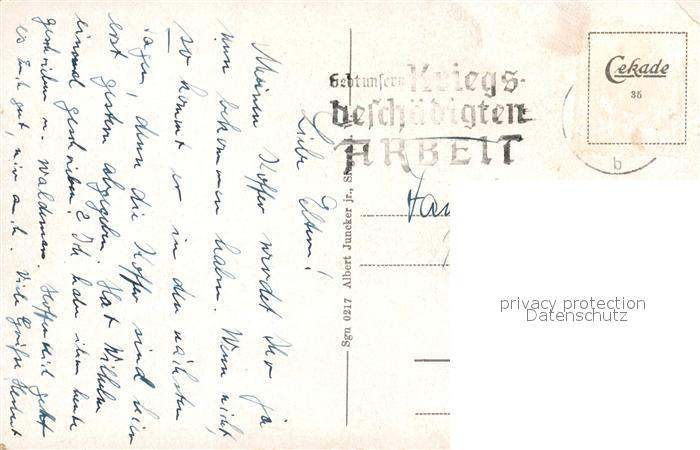 Liebe Eltern!
Meinen Koffer werdet Ihr ja
nun bekommen haben. Wenn nicht
so kommt er in den nächsten
Tagen, denn die Koffer sind hier
erst gestern abgegeben. Hat Wilhelm
einmal geschrieben? Ich habe ihm heute
geschrieben n. Hoffentlich geht
es Euch gut, mir auch. Viele Grüße Herbert
Sgn 0217 Albert Juncker jr.,
Gebt unsern Kriegs-
beschädigten
ARBEIT
b
Cekade
35
privacy protection
Datenschutz